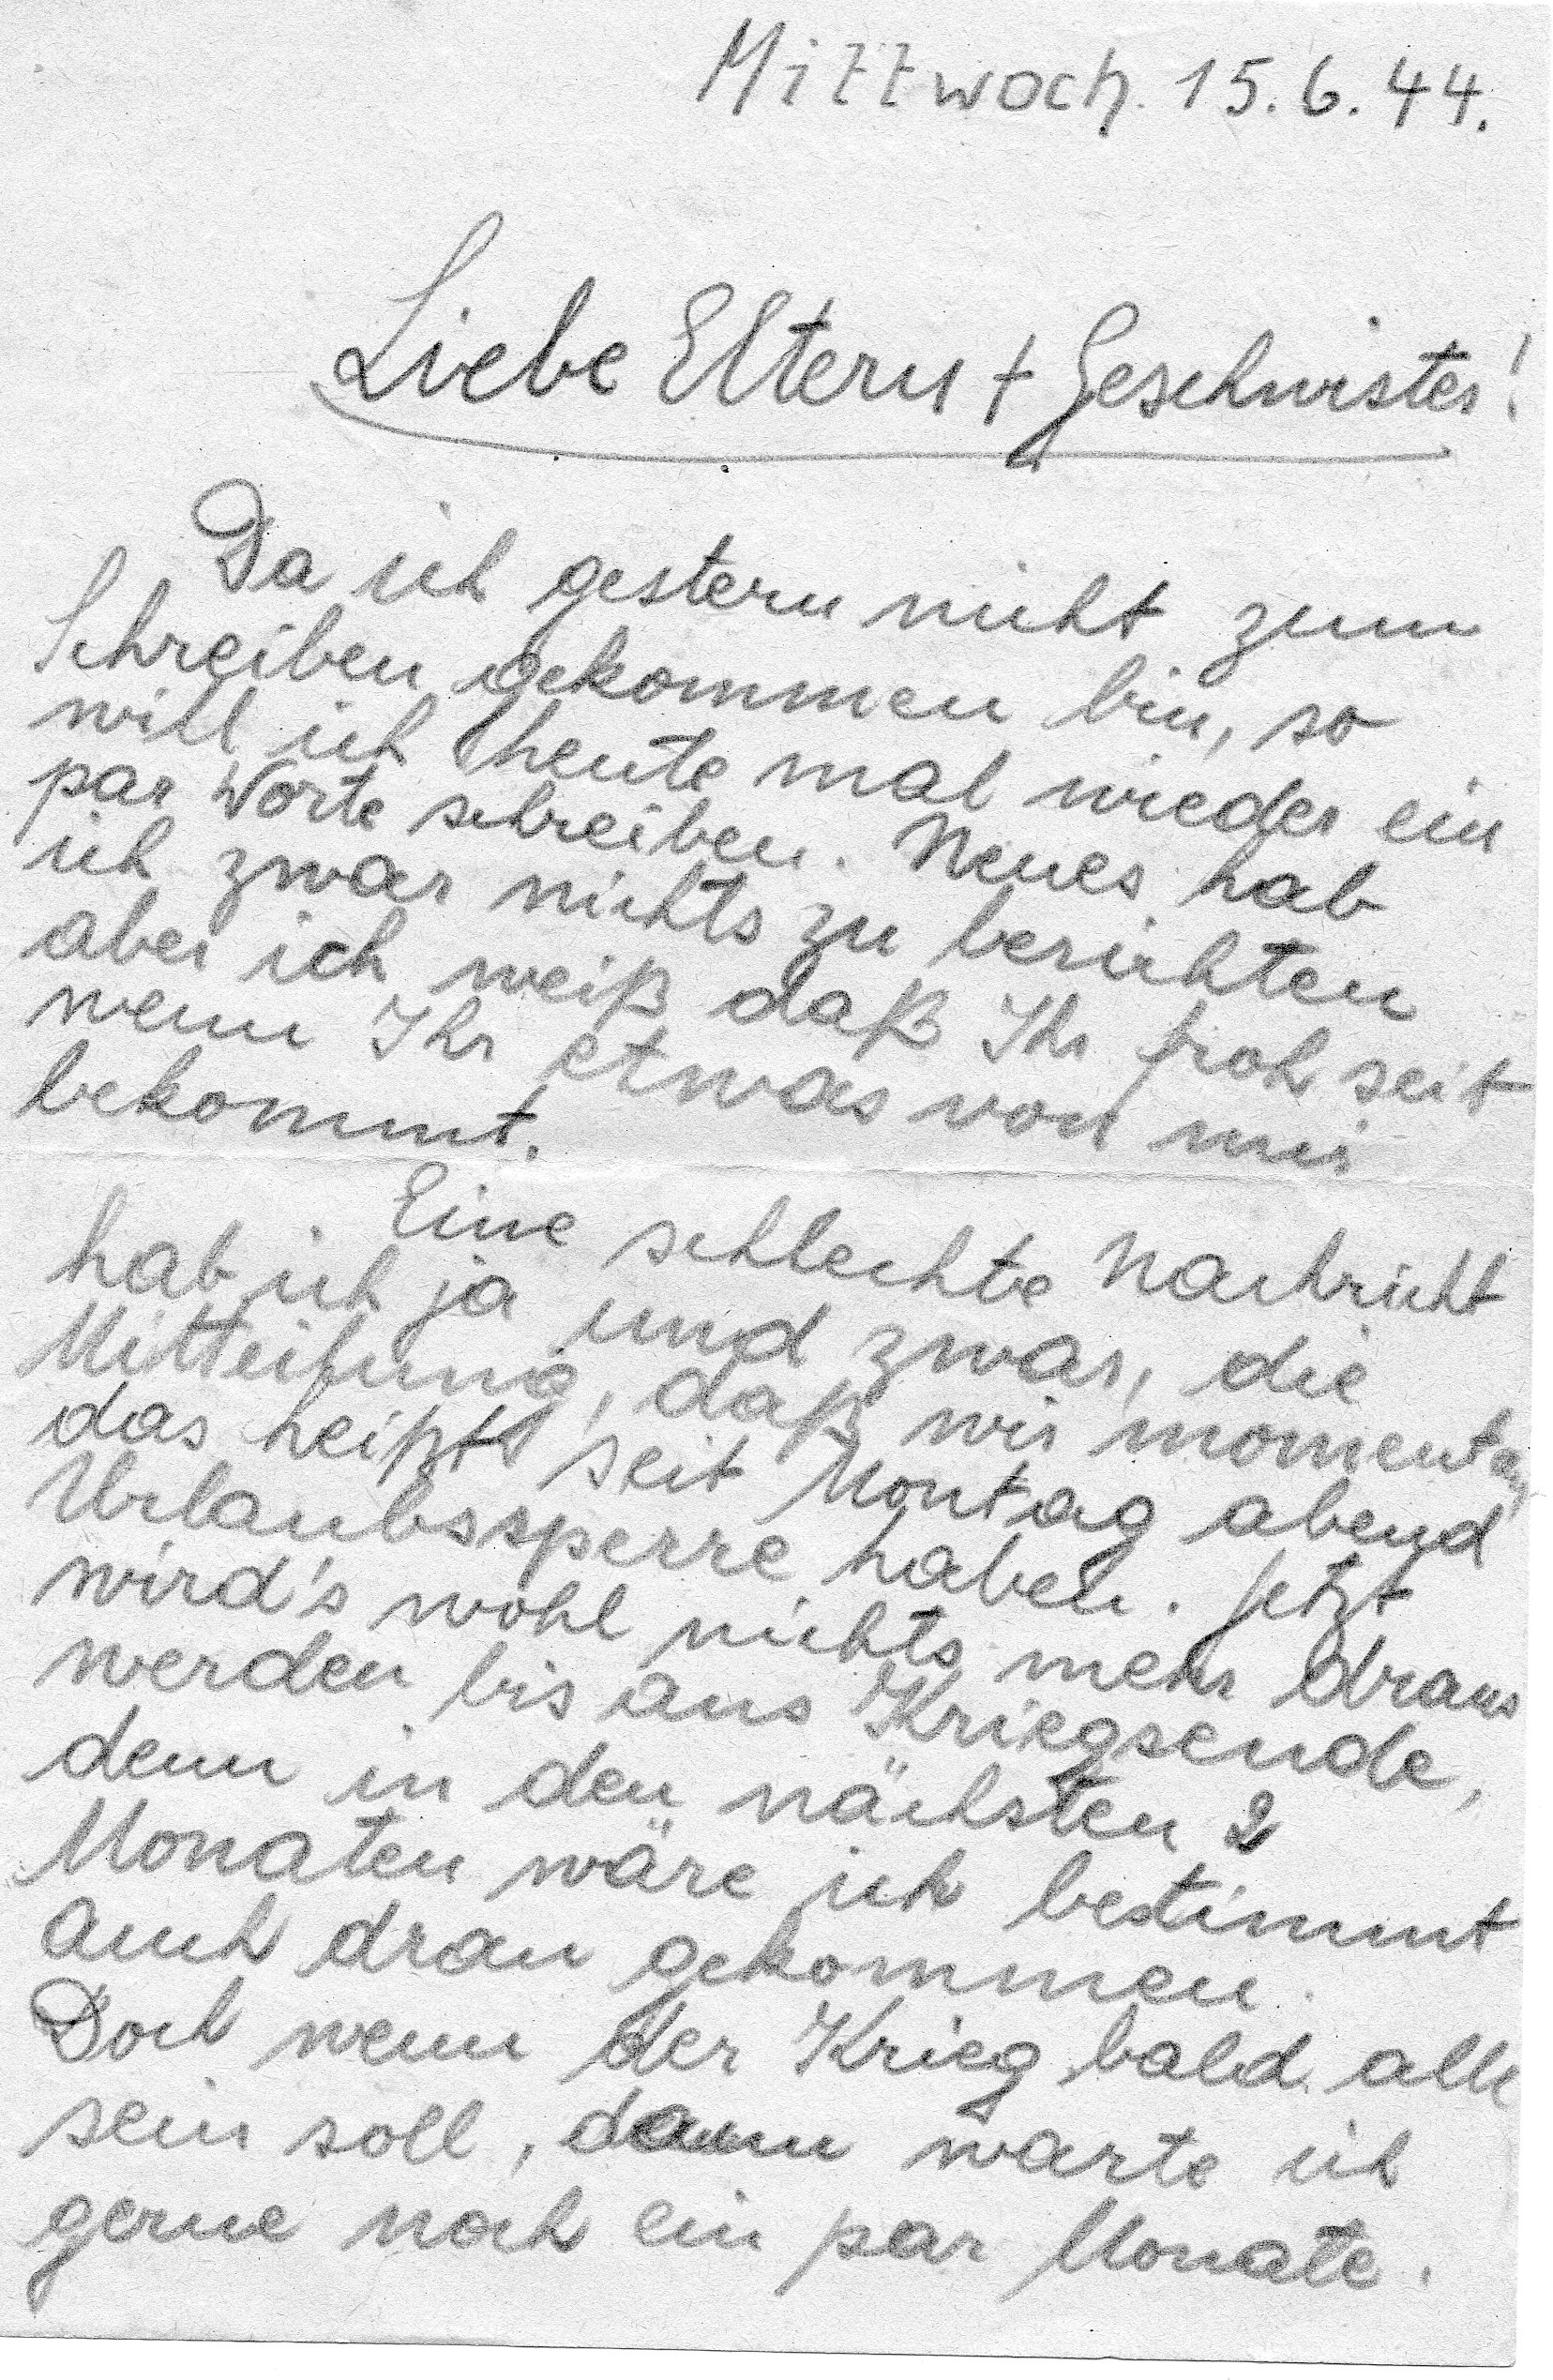 Mittwoch. 15.6.44.
Liebe Eltern + Geschwister!
Da ich gestern nicht zum
Schreiben gekommen bin, so
will ich heute mal wieder ein
par Worte schreiben. Neues hab
ich zwar nichts zu berichten
aber ich weiß daß Ihr froh seit
wenn Ihr etwas von mir
bekommt.
Eine schlechte Nachricht
hab ich ja und zwar, die
Mitteilung, daß wir momentan,
das heißt seit Montag abend
Urlaubssperre haben. Jetzt
wird's wohl nichts mehr draus
werden bis ans Kriegsende,
denn in den nächsten 2
Monaten wäre ich bestimmt
auch dran gekommen.
Doch wenn der Krieg bald alle
sein soll, dann warte ich
gerne noch ein par Monate.